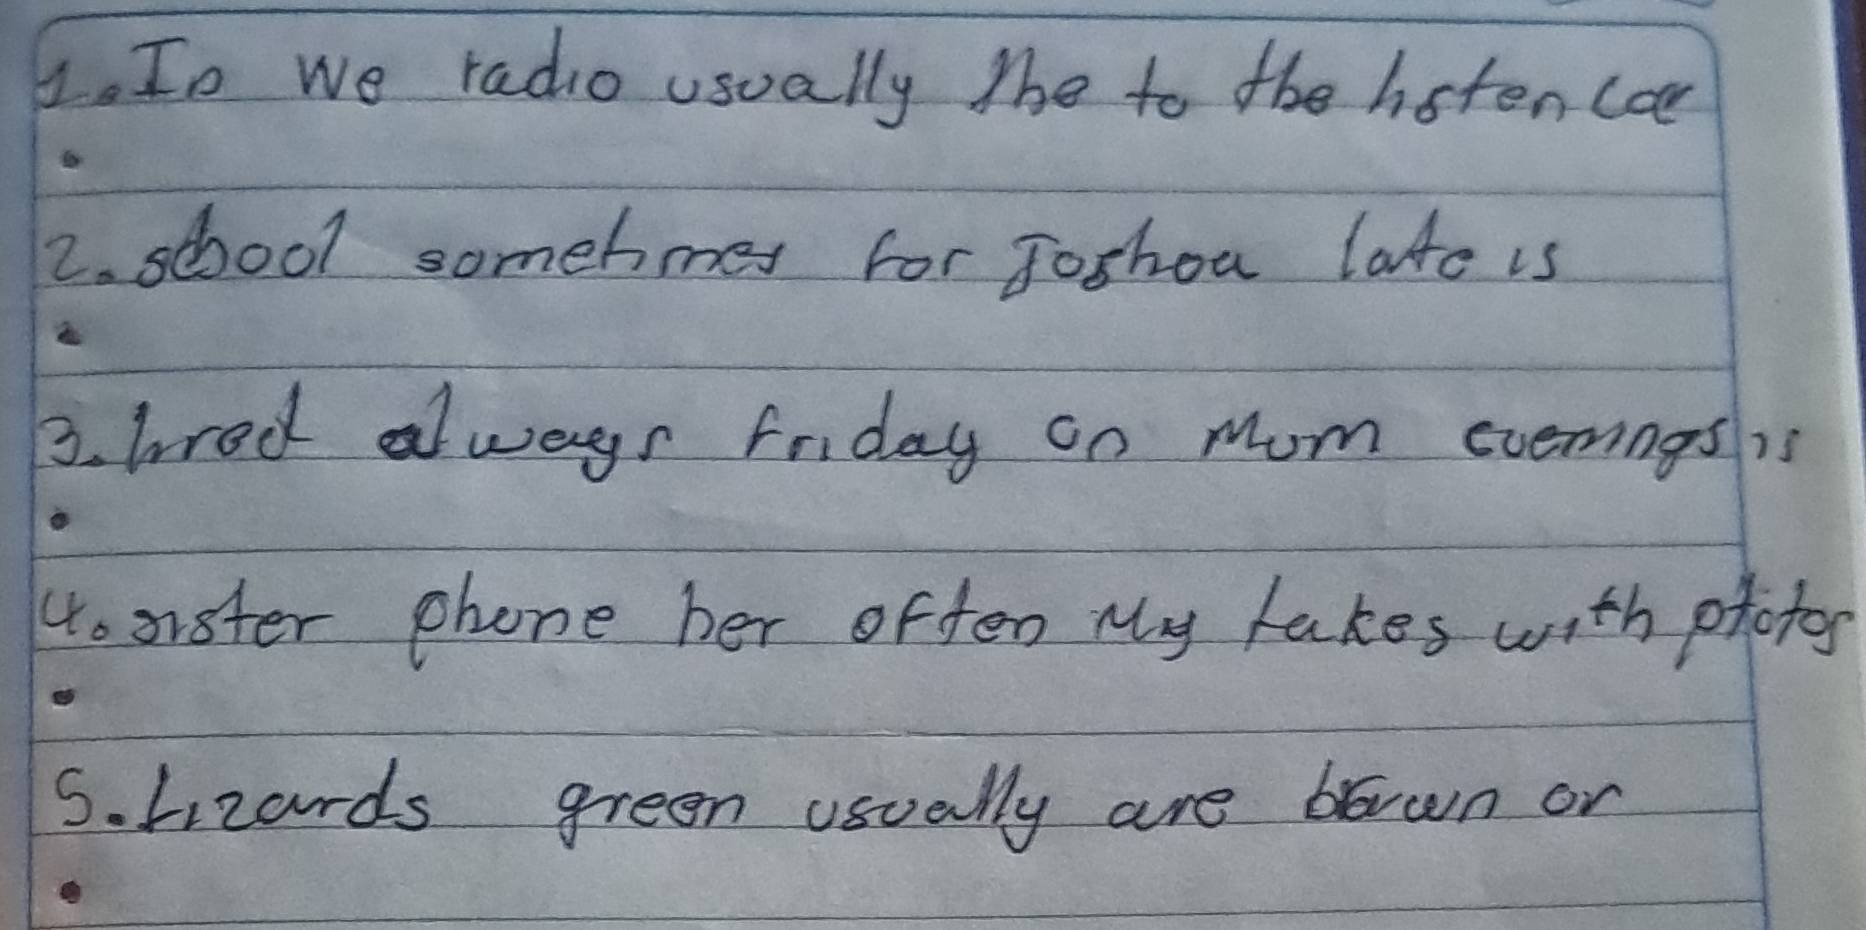 1. In We radio usually the to the listen car
2. school sometimes for Joshua late is
3. tired always Friday on Mum evenings is
4. sister phone her often My takes with photos
5. Lizards green usually are brown or